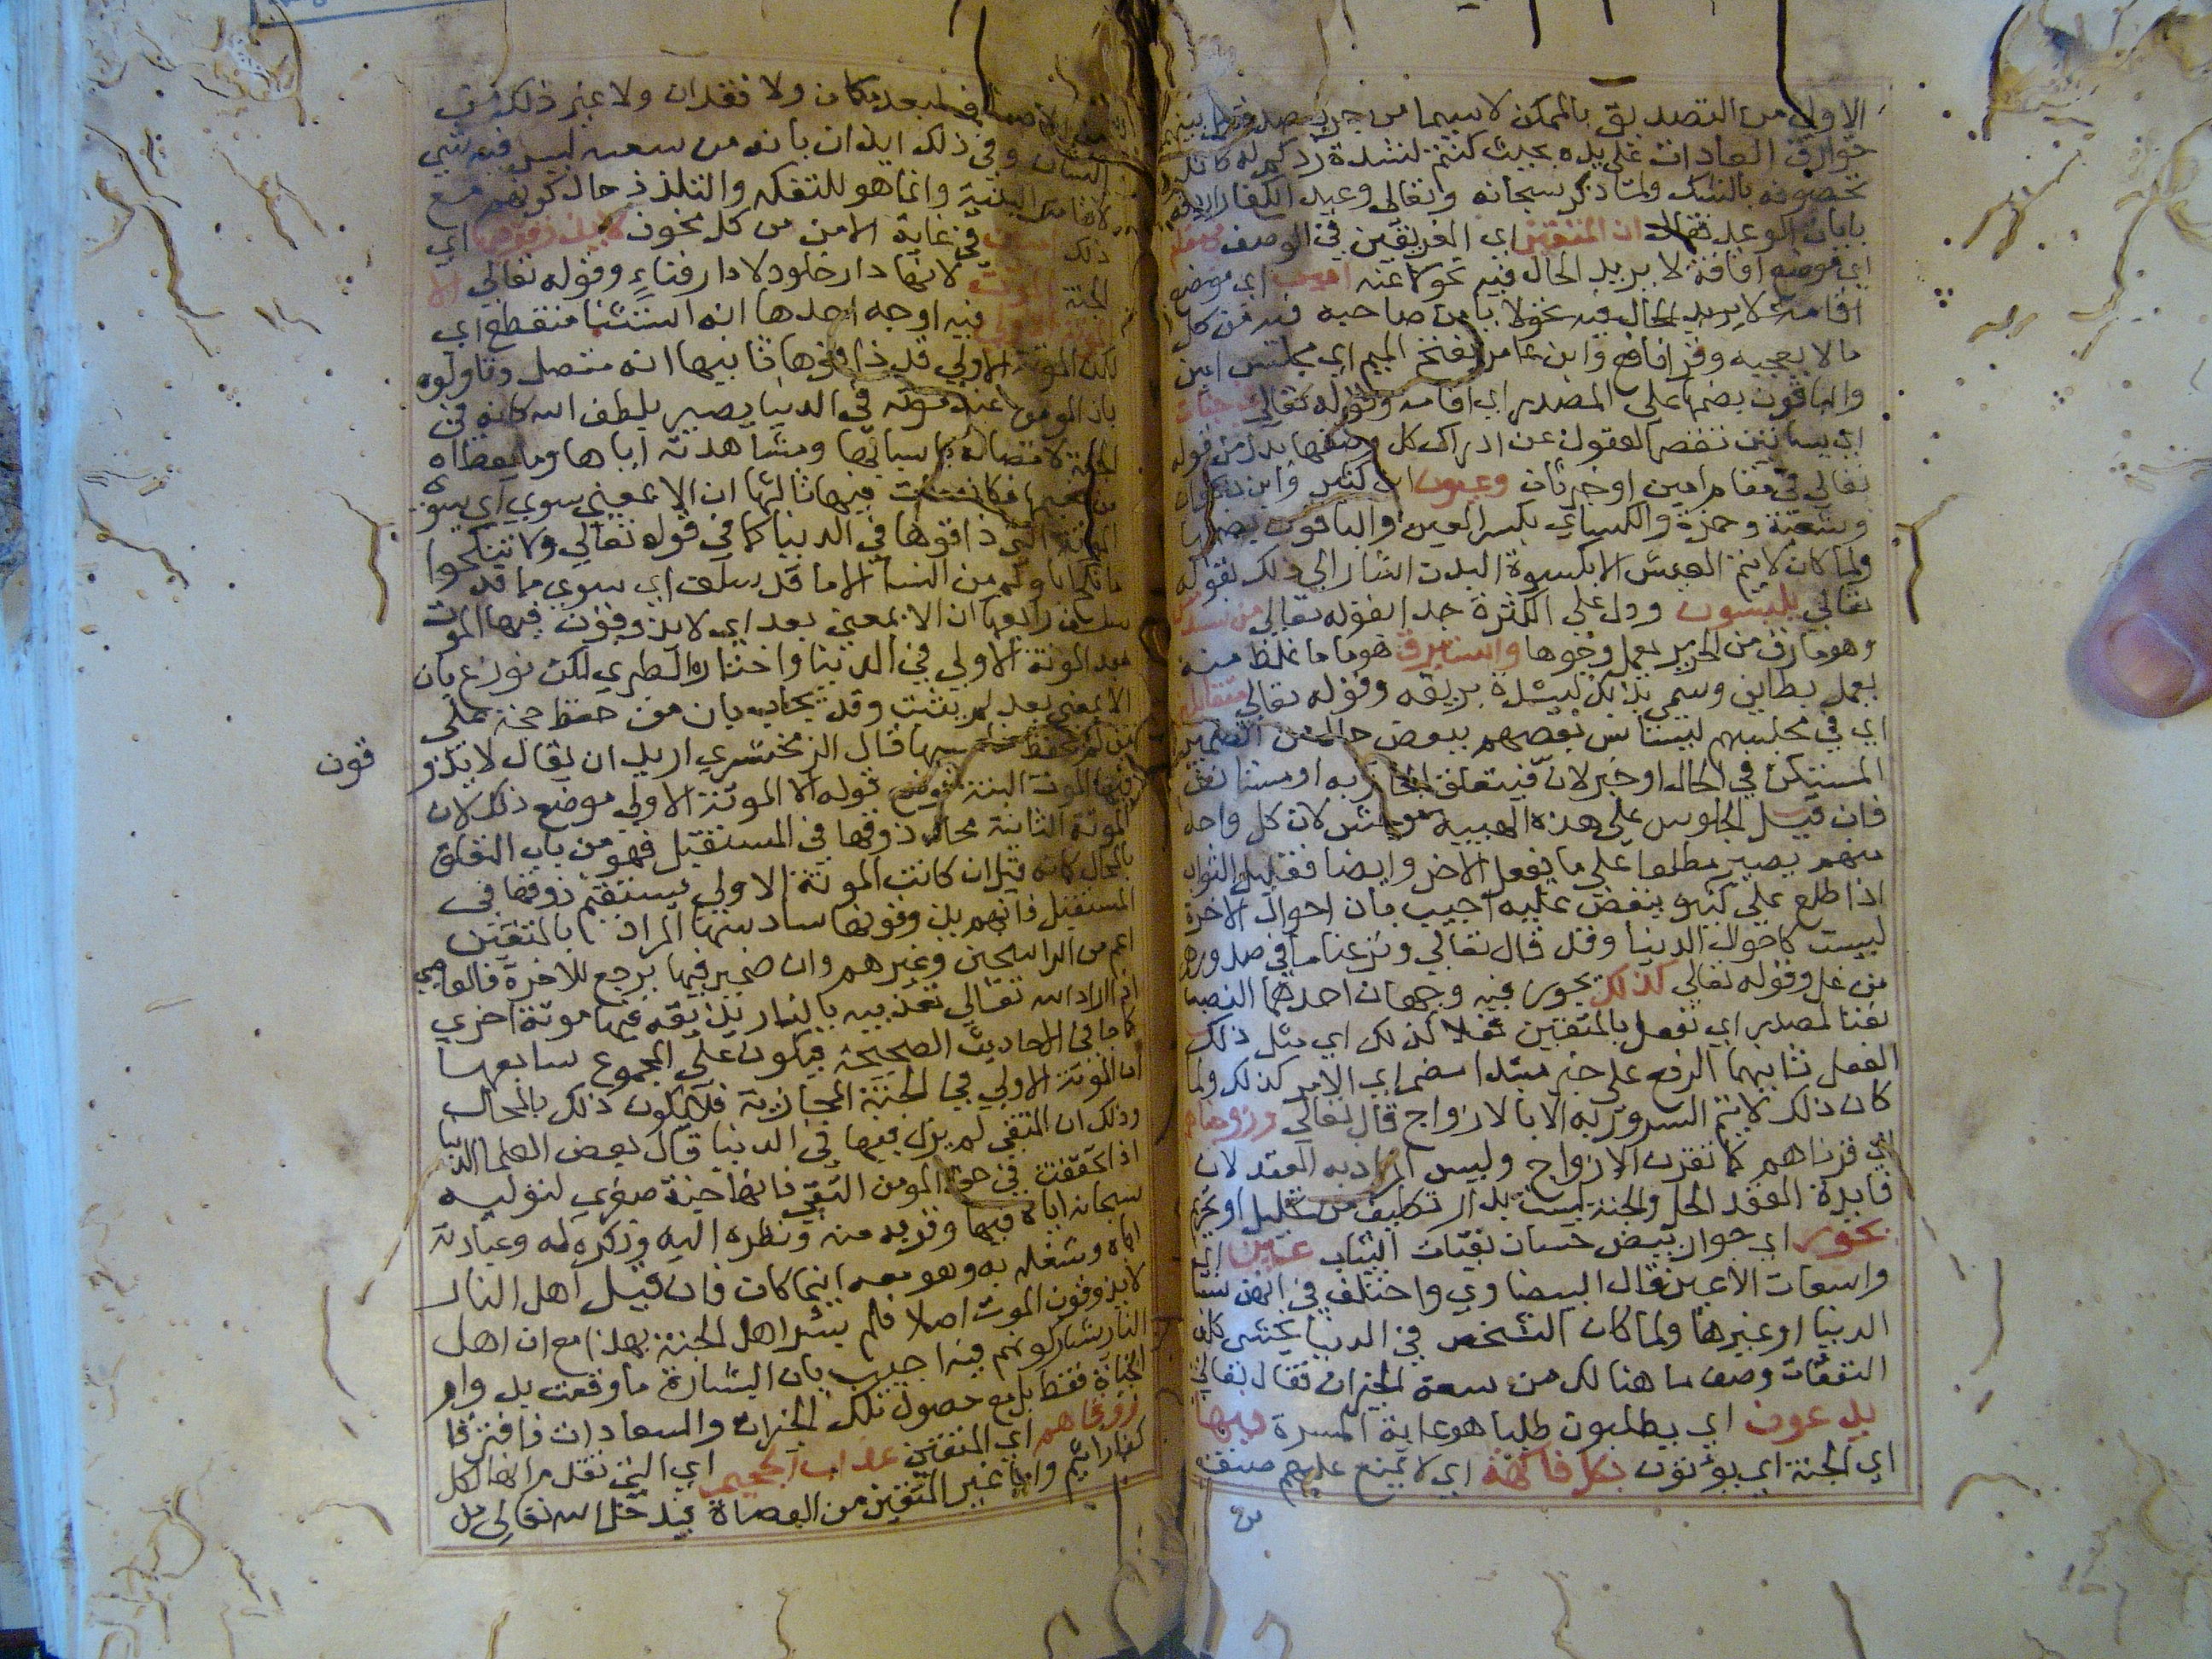 الاولي من التصديق بالممكن لاسيما من جرب صدقه وظهر بينهم
خوارق العادات علي يده بحيث كنتم لشدة ردكم له كانكم
تخصونه بالشك ولما ذكر سبحانه وتعالي وعيد الكفار اردفه
بايات الوعد فقال ان المتقين اي العريقين في الوصف مقام
اي موضع اقامة لا يريد الحال فيه تحولا عنه امين اي موضع
اقامة لا يريد الحال فيه تحولا يامن صاحبه فيه من كل
ما لا يعجبه وقرا نافع وابن عامر بفتح الميم اي مجلس امين
والباقون بضمها علي المصدر اي اقامة وقوله تعالي في جنات
اي بساتين تقصر العقول عن ادراك كل وصفها بدل من قوله
تعالي في مقام امين او خبر ثان وعيون ابن كثير وابن ذكوان
وشعبة وحمزة والكسائي بكسر العين والباقون بضمها
ولما كان لا يتم العيش الا بكسوة البدن اشار الي ذلك بقوله
تعالي يلبسون ودل علي الكثرة جدا بقوله تعالي من سندس
وهو ما رق من الحرير يعمل وجوها واستبرق هو ما غلظ منه
يعمل بطاين وسمي بذلك لشدة بريقه وقوله تعالي متقابلين
اي في مجلسهم ليستانس بعضهم ببعض حال من الضمير
المستكن في الحال او خبر لان فيتعلق الجار به او مستانف
فان قيل الجلوس علي هذه الهيية موحش لان كل واحد
منهم يصير مطلعا علي ما يفعل الاخر وايضا فقليل الثواب
اذا طلع علي كثيره ينغص عليه اجيب بان احوال الاخرة
ليست كاحوال الدنيا وقد قال تعالي ونزعنا ما في صدورهم
من غل وقوله تعالي كذلك يجوز فيه وجهان احدهما النصب
نعتا لمصدر اي نفعل بالمتقين فعلا كذلك اي مثل ذلك
الفعل ثانيهما الرفع علي خبر مبتدا مضمر اي الامر كذلك ولما
كان ذلك لا يتم السرور به الا بالازواج قال تعالي وزوجناهم
اي قرناهم كما تقرن الازواج وليس المراد به العقد لان
فايدة العقد الحل والجنة ليست بدار تكليف من تحليل او تحريم
بحور اي جوار بيض حسان نقيات الثياب عين اي
واسعات الاعين قال البيضاوي واختلف في انهن نسا
الدنيا او غيرها ولما كان الشخص في الدنيا يخشي كلفة
النفقات وصف ما هنالك من سعة الخيرات فقال تعالي
يدعون اي يطلبون طلبا هو غاية المسرة فيها
اي الجنة اي يؤتون بكل فاكهة اي لا يمتنع عليهم صنف
من
الاصناف لبعد مكان ولا فقدان ولا غير ذلك من
الشان وفي ذلك ايذان بانه من سعته ليس فيه شي
لاقامة البنية وانما هو للتفكه والتلذذ حال كونهم مع
ذلك امنين في غاية الامن من كل مخوف لا يذوقون فيها اي
الجنة الموت لانها دار خلود لا دار فناء وقوله تعالي الا
الموتة الاولي فيه اوجه احدها انه استثنا منقطع اي
لكن الموتة الاولي قد ذاقوها ثانيها انه متصل وتاولوه
بان المومن عند موته في الدنيا يصير بلطف الله كانه في
الجنة لاتصاله باسبابها ومشاهدته اياها وما يعطاه
من نعيمها فكانه مات فيها ثالثها ان الا بمعني سوي اي سوي
الموتة التي ذاقوها في الدنيا كما في قوله تعالي ولا تنكحوا
ما نكح اباوكم من النسا الا ما قد سلف اي سوي ما قد
سلف رابعها ان الا بمعني بعد اي لا يذوقون فيها الموت
بعد الموتة الاولي في الدنيا واختاره الطبري لكن نوزع بان
الا بمعني بعد لم يثبت وقد يجاب بان من حفظ حجة علي
من لم يحفظ خامسها قال الزمخشري اريد ان يقال لا يذو
قون
فيها الموت البتة فوضع قوله الا الموتة الاولي موضع ذلك لان
الموتة الثانية محال ذوقها في المستقبل فهو من باب التعليق
بالمحال كانه قيل ان كانت الموتة الاولي يستقيم ذوقها في
المستقبل فانهم يذوقونها سادسها المراد بالمتقين
اعم من الراسخين وغيرهم وان ضمير فيها يرجع للاخرة فالعاصي
اذا اراد الله تعالي تعذيبه بالنار يذيقه فيها موتة اخري
كما في الاحاديث الصحيحة فيكون علي المجموع سابعها
ان الموتة الاولي في الجنة المجازية فلا يكون ذلك بالمحال
وذلك ان المتقي لم يزل فيها في الدنيا قال بعض العلما الدنيا
اذا تحققت في حق المومن التقي فانها جنة صغري لتوليه
سبحانه اياه فيها وقربه منه ونظره اليه وذكره له وعبادته
اياه وشغله به وهو معه اينما كان فان قيل اهل النار
لا يذوقون الموت اصلا فلم بشر اهل الجنة بهذا مع ان اهل
النار يشاركونهم فيه اجيب بان البشارة ما وقعت بدوام
الحياة فقط بل مع حصول تلك الخيرات والسعادات فافترقا
ووقاهم اي المتقين عذاب الجحيم اي التي تقدم انها لكل
كفار اثيم واما غير المتقين من العصاة فيدخل الله تعالي من